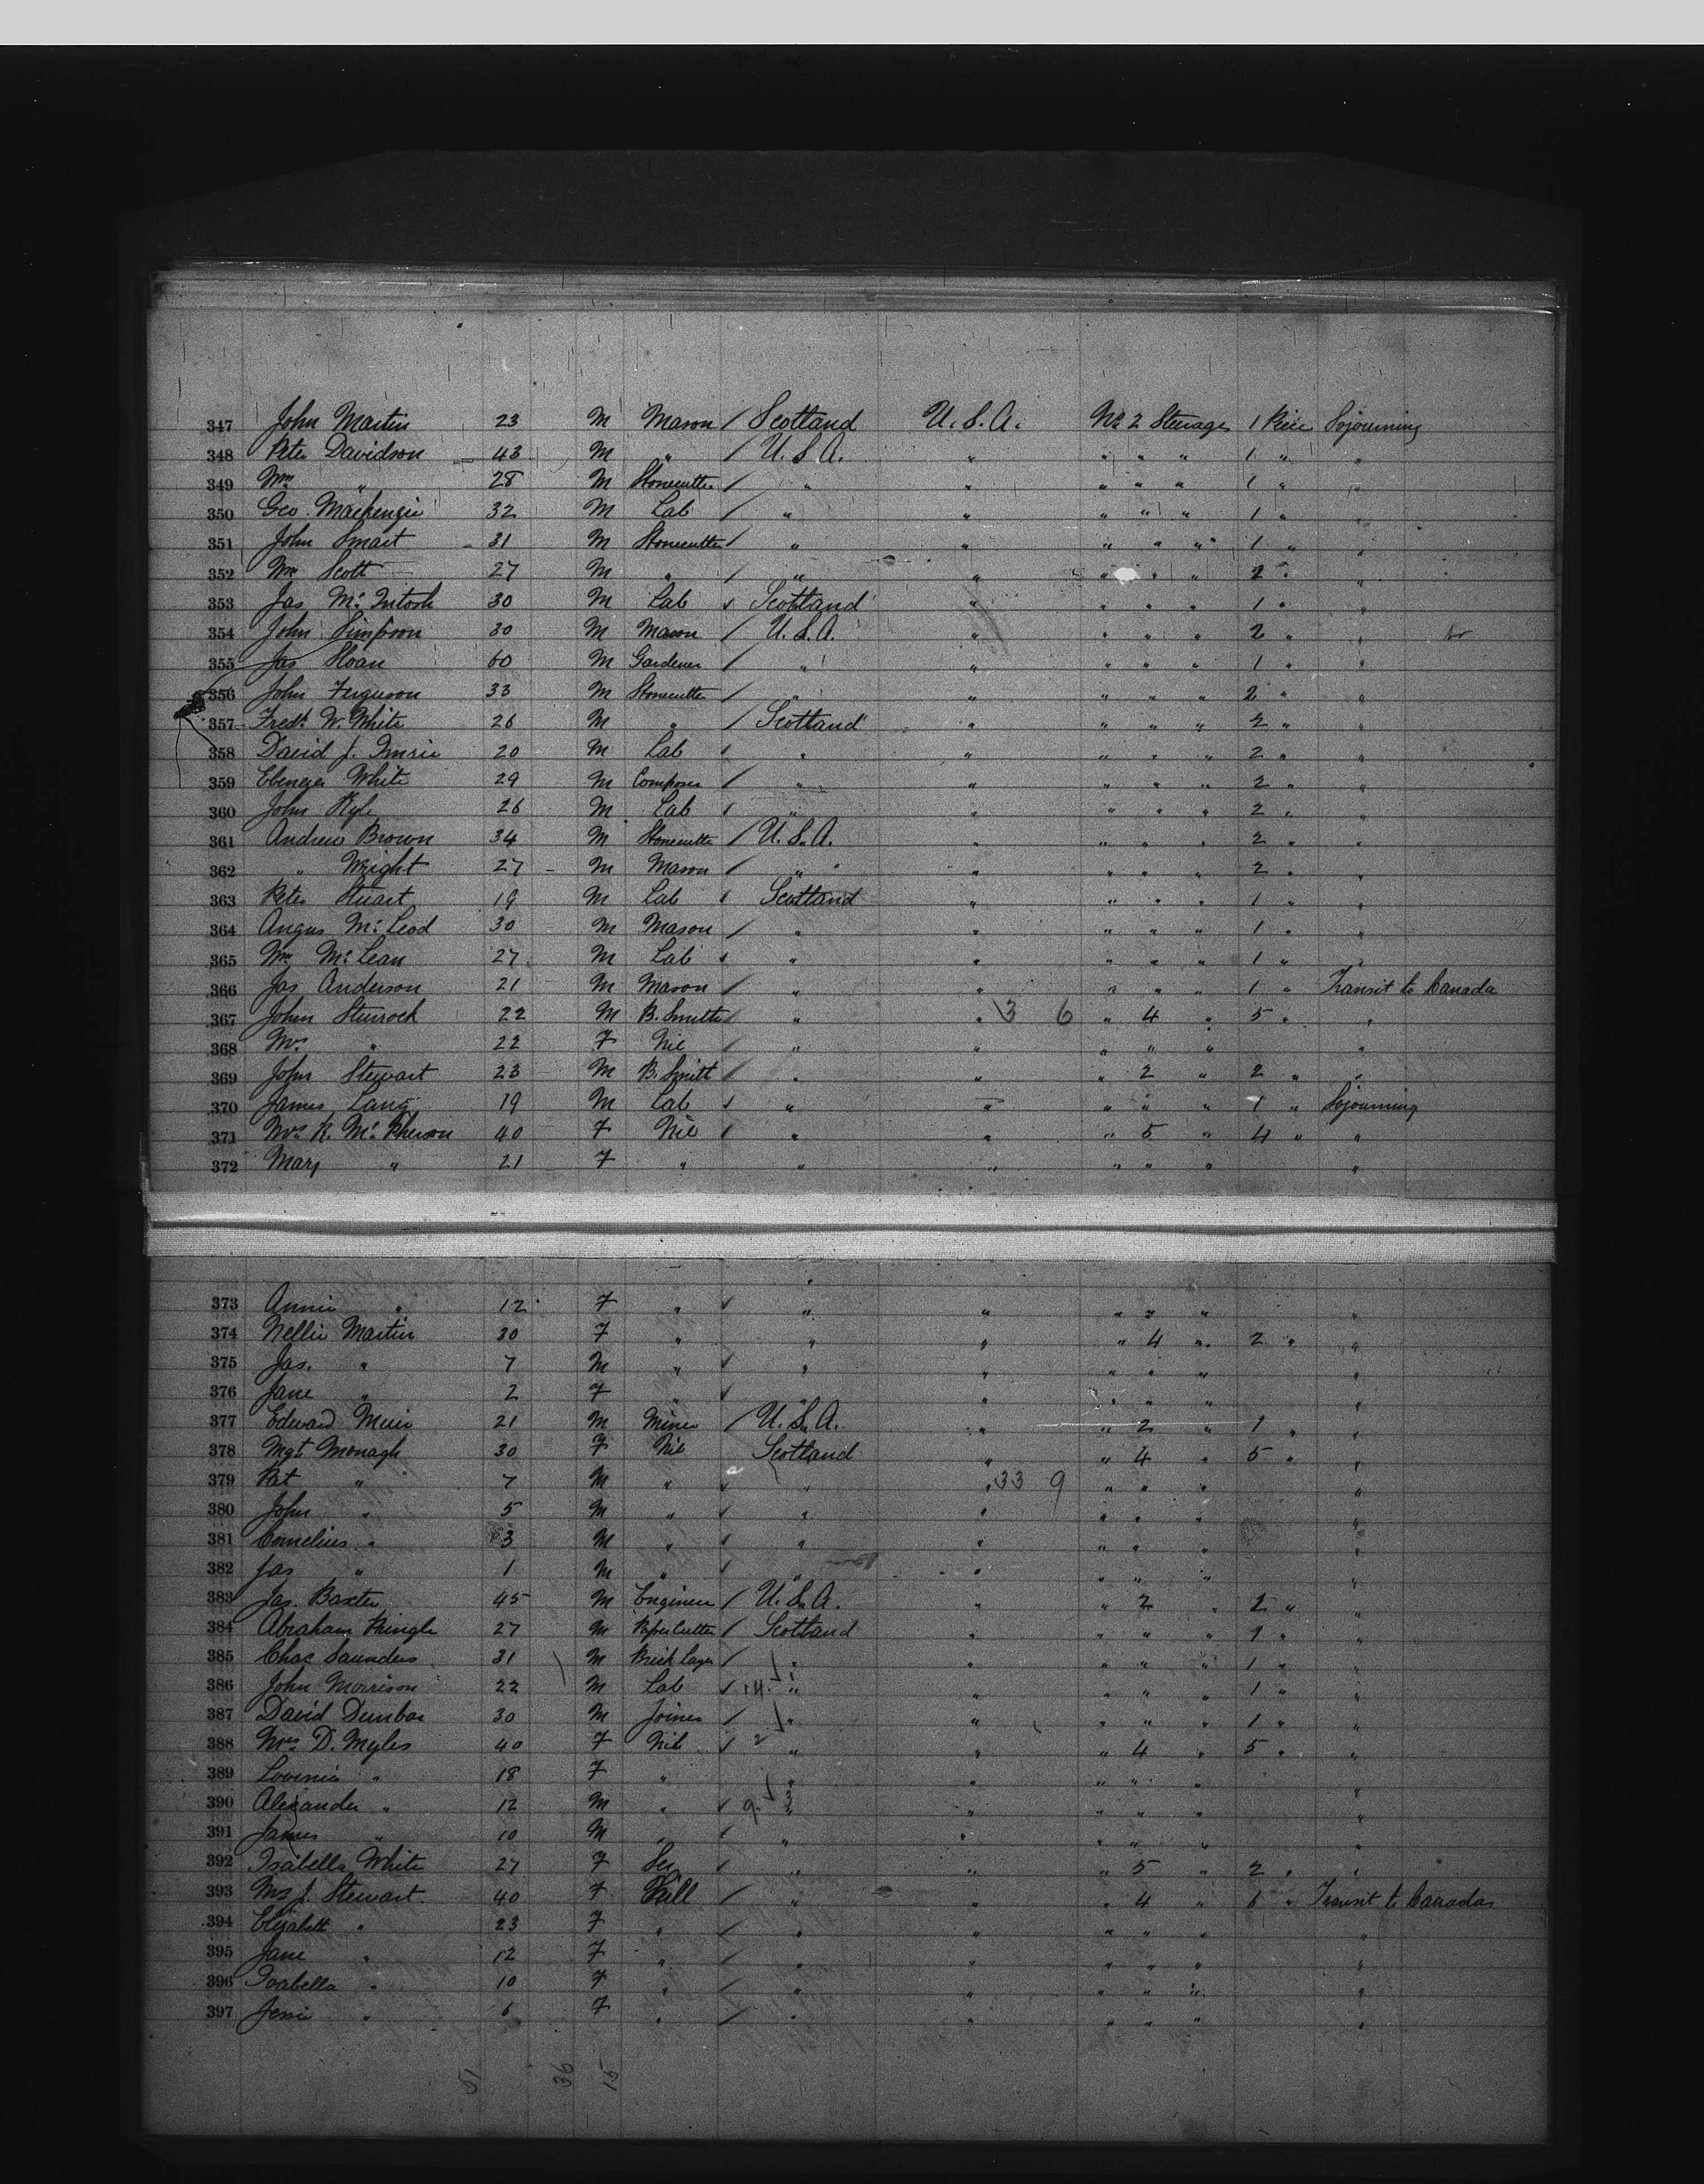 347 John Martin 23 M Mason / Scotland U.S.A. No. 2 Steerage 1 Piece Sojourning
348 Peter Davidson 43 M " / U.S.A. " " " " 1 " "
349 Wm " 28 M Stonecutter / " " " " " 1 " "
350 Geo. Mackenzie 32 M Lab / " " " " " 1 " "
351 John Smart 31 M Stonecutter / " " " " " 1 " "
352 Wm Scott 27 M " / " " " " " 2 " "
353 Jas McIntosh 30 M Lab ✓ Scotland " " " " 1 " "
354 John Simpson 30 M Mason / U.S.A. " " " " 2 " "
355 Jas Sloan 60 M Gardener / " " " " " 1 " "
356 John Ferguson 33 M Stonecutter / " " " " " 2 " "
357 Fredk W. White 26 M " / Scotland " " " " 2 " "
358 David J. Imrie 20 M Lab ✓ " " " " " 2 " "
359 Ebenezer White 29 M Compositor / " " " " " 2 " "
360 John Kyle 26 M Lab ✓ " " " " " 2 " "
361 Andrew Brown 34 M Stonecutter / U.S.A. " " " " 2 " "
362 " Wright 27 M Mason / " " " " " 2 " "
363 Peter Stuart 19 M Lab ✓ Scotland " " " " 1 " "
364 Angus McLeod 30 M Mason / " " " " " 1 " "
365 Wm McLean 27 M Lab ✓ " " " " " 1 " "
366 Jas Anderson 21 M Mason / " " " " " 1 " Transit to Canada
367 John Sturrock 22 M B. Smith / " " 3 6 " 4 " 5 " "
368 Mrs " 22 F Nil / " " " " " "
369 John Stewart 23 M B. Smith / " " " 2 " 2 " "
370 James Lang 19 M Lab ✓ " " " " " 1 " Sojourning
371 Mrs R. McPherson 40 F Nil ✓ " " " 5 " 4 " "
372 Mary " 21 F " " " " " " "
373 Annie " 12 F " ✓ " " " " " "
374 Nellie Martin 30 F " " " " 4 " 2 " "
375 Jas. " 7 M " ✓ " " " " " "
376 Jane " 2 F " ✓ " " " " " "
377 Edward Muir 21 M Miner / U.S.A. " " 2 " 1 " "
378 Mgt Monagh 30 F Nil Scotland " " 4 " 5 " "
379 Pat " 7 M " ✓ " " 33 9 " " " "
380 John " 5 M " ✓ " " " " " "
381 Cornelius " 3 M " ✓ " " " " " "
382 Jas " 1 M " ✓ " " " " " "
383 Jas. Baxter 45 M Engineer / U.S.A. " " 2 " 2 " "
384 Abraham Pringle 27 M Paper Cutter / Scotland " " " " 1 " "
385 Chas Saunders 31 M Brick Layer / " " " " " 1 " "
386 John Morrison 22 M Lab ✓ 14 " " " " " 1 " "
387 David Dunbar 30 M Joiner / " " " " " 1 " "
388 Mrs D. Myles 40 F Nil ✓ 2 " " " 4 " 5 " "
389 Lovinia " 18 F " " " " " " "
390 Alexander " 12 M " ✓ 9 3 " " " " " "
391 James " 10 M " ✓ " " " " " "
392 Isabella White 27 F Ser ✓ " " " 5 " 2 " "
393 Mrs J. Stewart 40 F Nill / " " " 4 " 6 " Transit to Canada
394 Elizabeth " 23 F " / " " " " " "
395 Jane " 12 F " / " " " " " "
396 Isabella " 10 F " / " " " " " "
397 Jessie " 6 F " / " " " " " "
51 36 15